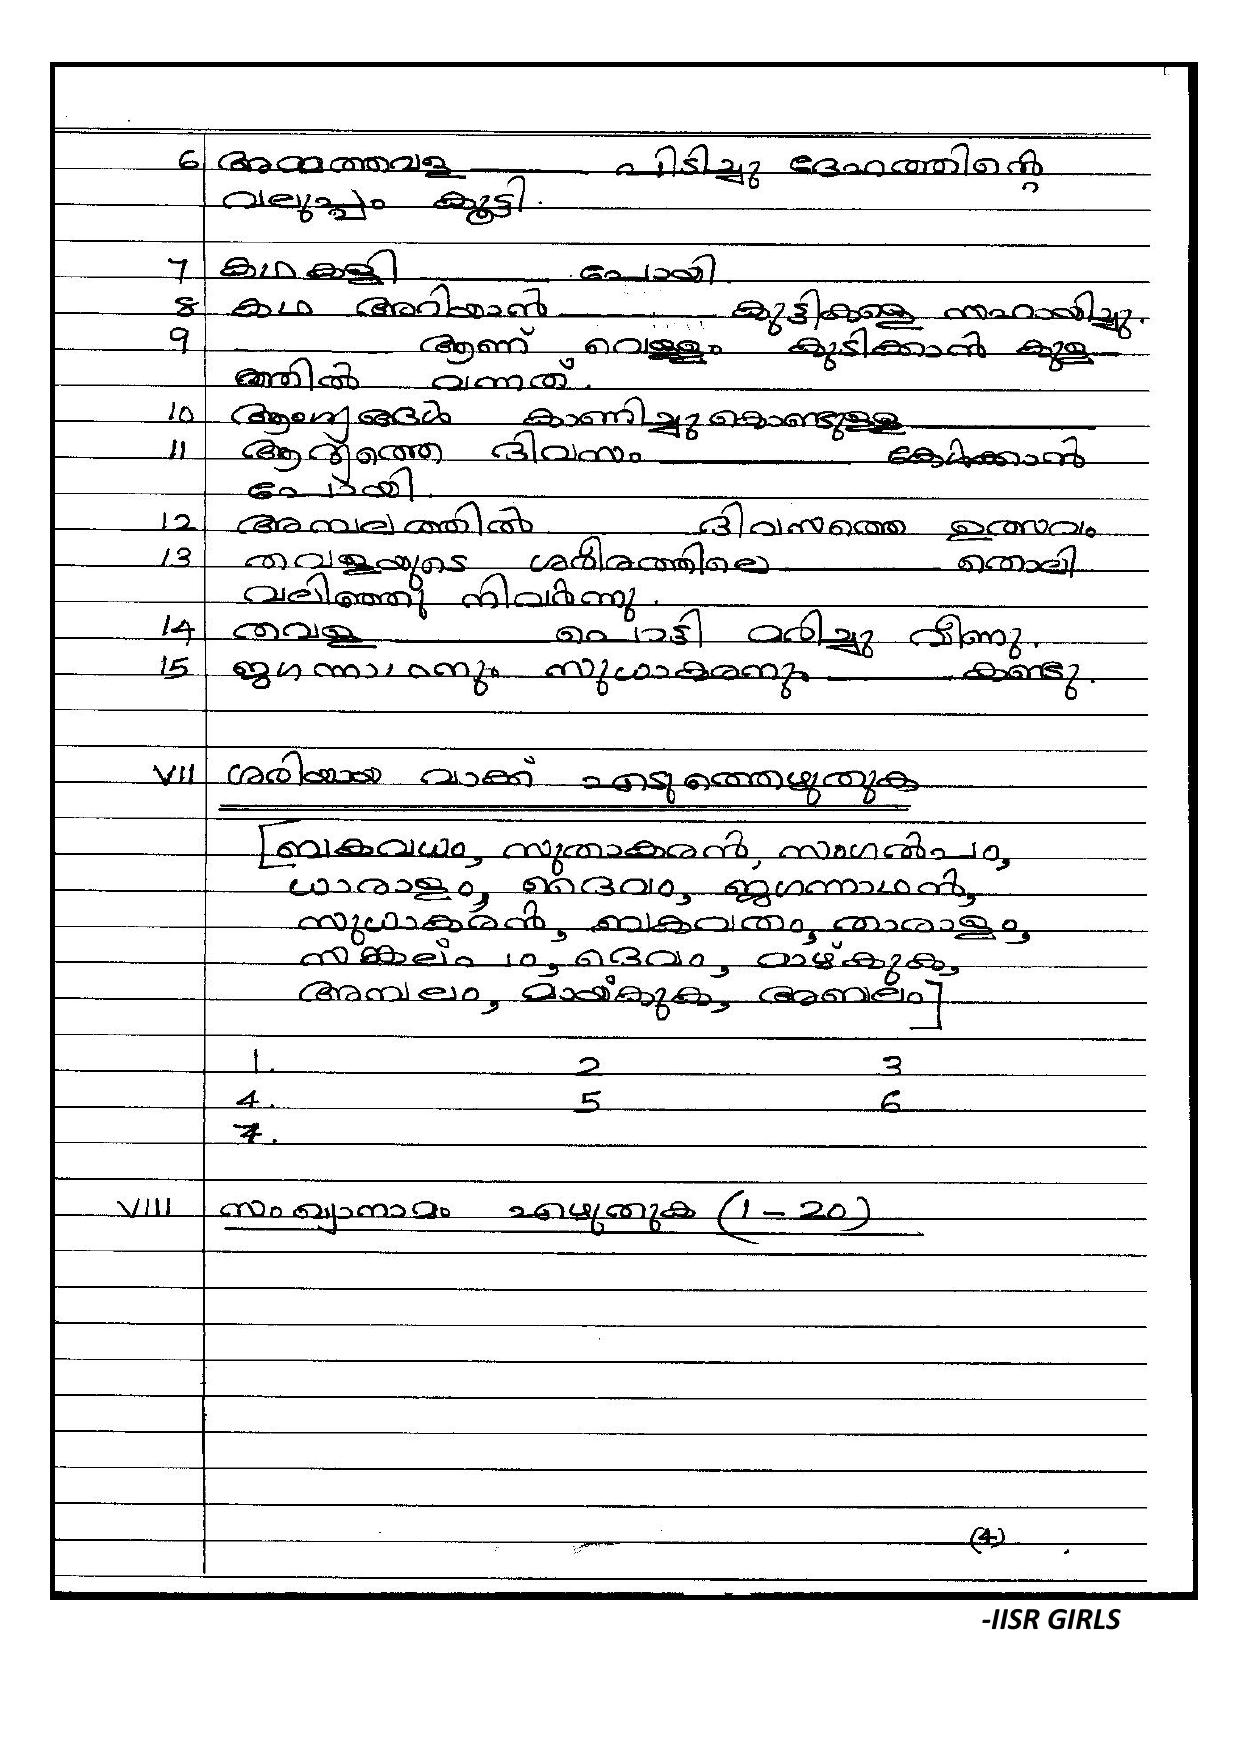 6 അമ്മത്തവള ________ പിടിച്ചു ദേഹത്തിന്റെ
വലുപ്പം കൂട്ടി.
7 കഥകളി ________ പോയി.
8 കഥ അറിയാൻ ________ കുട്ടികളെ സഹായിച്ചു.
9 ________ ആണ് വെള്ളം കുടിക്കാൻ കുള
ത്തിൽ വന്നത്.
10 ആംഗ്യങ്ങൾ കാണിച്ചുകൊണ്ടുള്ള ________
11 ആദ്യത്തെ ദിവസം ________ കേൾക്കാൻ
പോയി.
12 അമ്പലത്തിൽ ________ ദിവസത്തെ ഉത്സവം
13 തവളയുടെ ശരീരത്തിലെ ________ തൊലി
വലിഞ്ഞു നിവർന്നു.
14 തവള ________ പൊട്ടി മരിച്ചു വീണു.
15 ജഗന്നാഥനും സുധാകരനും ________ കണ്ടു.
VII ശരിയായ വാക്ക് എടുത്തെഴുതുക
[ബകവധം, സുതാകരൻ, സംഗൽപം,
ധാരാളം, ദൈവം, ജഗന്നാഥൻ,
സുധാകരൻ, ബകവതം, താരാളം,
സങ്കല്പം, ദെവം, വാഴ്കുക,
അമ്പലം, മായ്കുക, അബലം]
1. 2 3
4. 5 6
7.
VIII സംഖ്യാനാമം എഴുതുക (1-20)
(4)
-IISR GIRLS